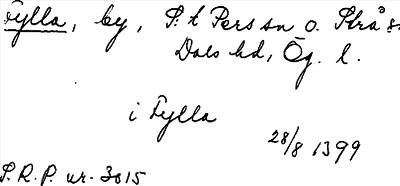 Fylla, by, S:t Pers sn o. Strå s.
Dals hd, Ög. l.
i Fylla
28/8 1399
S.R.P. nr. 3015